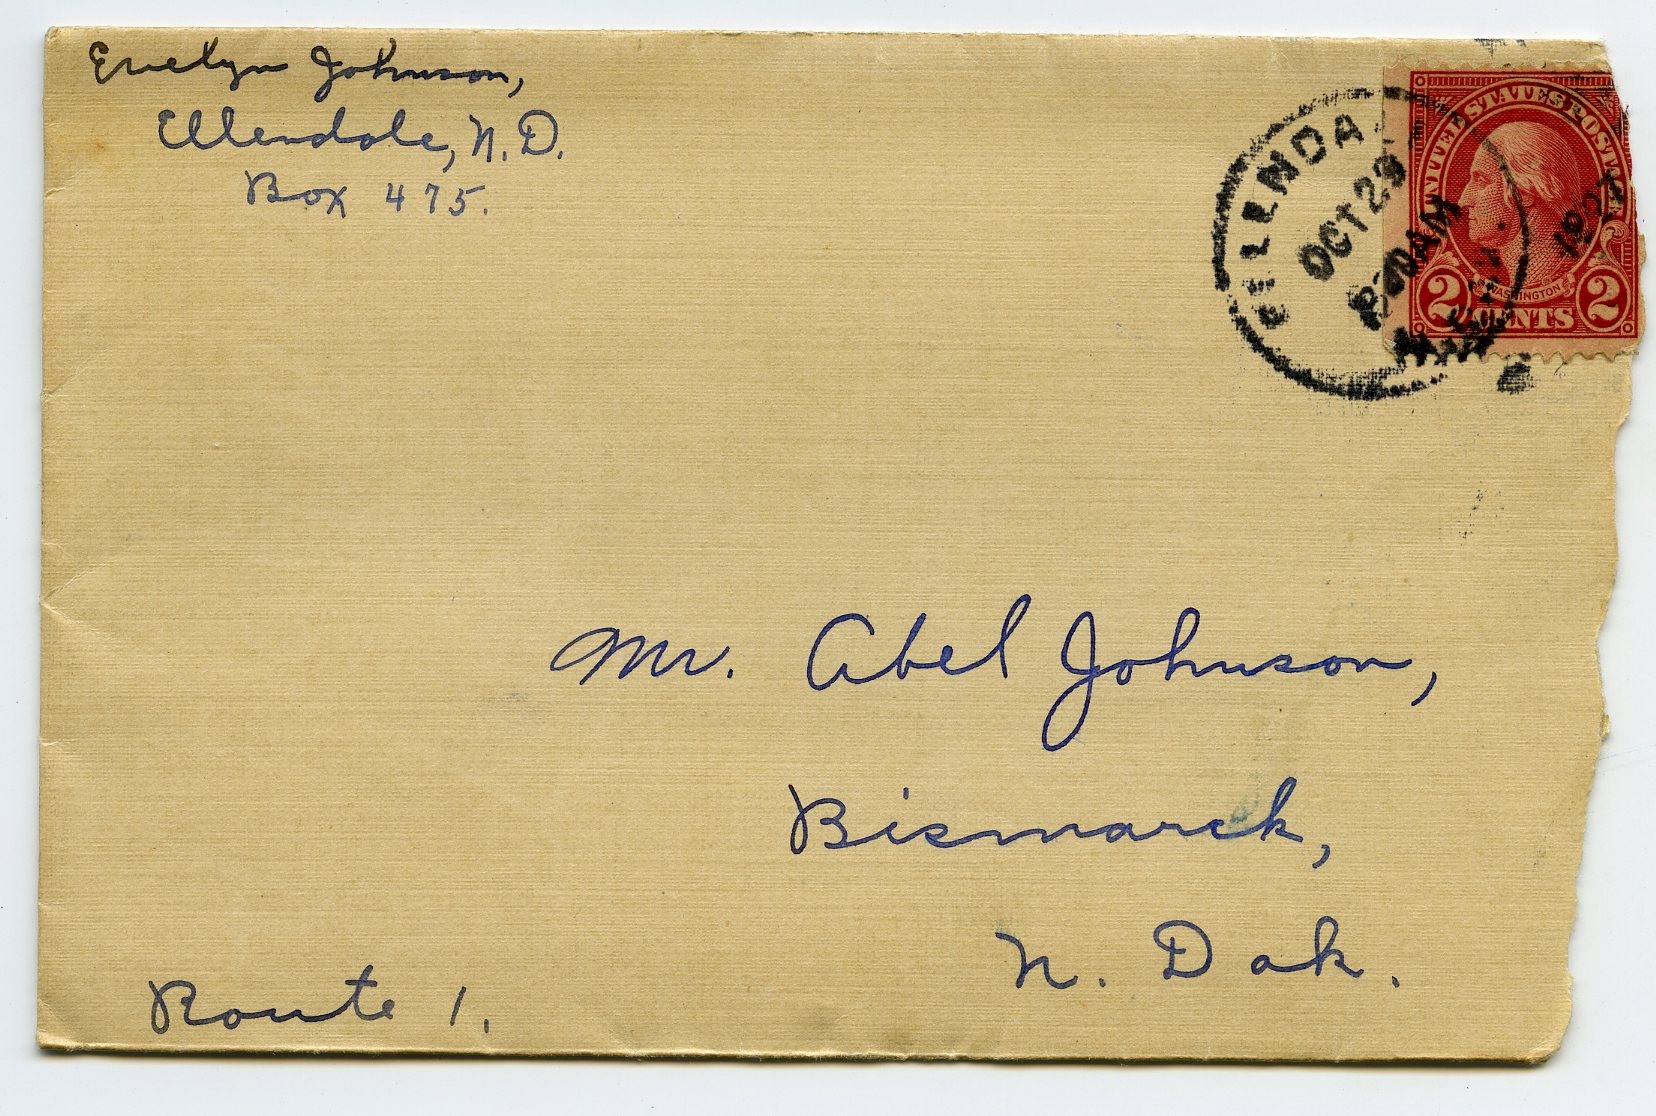 Evelyn Johnson,
Ellendale, N.D.
Box 475.
ELLENDA
OCT 29
AM
1927
UNITED STATES POSTAGE
WASHINGTON
2 CENTS 2
Mr. Abel Johnson,
Bismarck,
N. Dak.
Route 1.